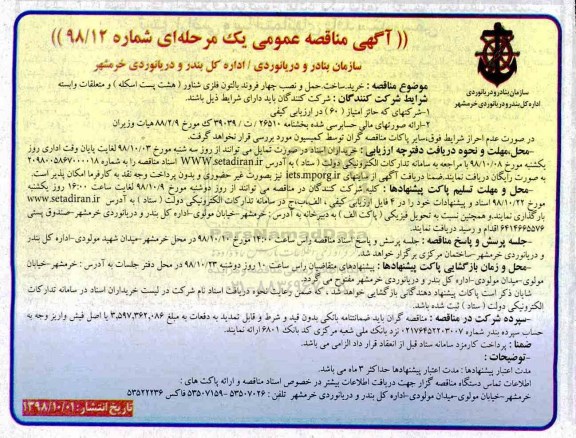 (( آگهی مناقصه عمومی یک مرحله‌ای شماره ۹۸/۱۲ ))
سازمان بنادر و دریانوردی / اداره کل بندر و دریانوردی خرمشهر
سازمان بنادر و دریانوردی
اداره کل بندر و دریانوردی خرمشهر
موضوع مناقصه : خرید،ساخت،حمل و نصب چهار فروند پالتون فلزی شناور ( هشت پست اسکله ) و متعلقات وابسته
شرایط شرکت کنندگان : شرکت کنندگان باید دارای شرایط ذیل باشند.
۱-شرکتهای که حائز امتیاز (۶۰ ) در ارزیابی کیفی
۲-ارائه صورتهای مالی حسابرسی شده بخشنامه ۲۶۵۱۰ / ت / ۳۹۰۳۹ ک مورخ ۸۸/۲/۹ هیات وزیران
در صورت عدم احراز شرایط فوق،سایر پاکات مناقصه گران توسط کمیسیون مورد بررسی قرار نخواهد گرفت.
-محل،مهلت و نحوه دریافت دفترچه ارزیابی : خریداران اسناد در صورت تمایل می توانند از روز سه شنبه مورخ ۹۸/۱۰/۰۳ لغایت پایان وقت اداری روز
یکشنبه مورخ ۹۸/۱۰/۰۸ با مراجعه به سامانه تدارکات الکترونیکی دولت ( ستاد ) به آدرس WWW.setadiran.ir اسناد مناقصه را به شماره ۲۰۹۸۰۰۵۸۶۷۰۰۰۰۱۸
به صورت رایگان دریافت نمایند،ضمنا دریافت آگهی از سایتهای iets.mporg.ir نیز بصورت غیر حضوری و بدون پرداخت وجه نقد به کارفرما امکان پذیر است.
-محل و مهلت تسلیم پاکت پیشنهادها : کلیه شرکت کنندگان در مناقصه می توانند از روز دوشنبه مورخ ۹۸/۱۰/۹ لغایت ساعت ۱۶:۰۰ روز یکشنبه
مورخ ۹۸/۱۰/۲۲ اسناد و پیشنهادات خود را در ۴ فایل ارزیابی کیفی ، الف،ب،ج در سامانه تدارکات الکترونیکی دولت ( ستاد ) به آدرس www.setadiran.ir
بارگذاری نمایند،و همچنین نسبت به تحویل فیزیکی ( پاکت الف ) به دبیرخانه به آدرس : خرمشهر-خیابان مولوی -اداره کل بندر و دریانوردی خرمشهر صندوق پستی
۶۴۱۴۶۶۵۵۷۶ اقدام و رسید دریافت نمایند.
-جلسه پرسش و پاسخ مناقصه : جلسه پرسش و پاسخ اسناد مناقصه راس ساعت ۱۴:۰۰ مورخ ۹۸/۱۰/۱۰ در محل خرمشهر-میدان شهید مولودی-اداره کل بندر
و دریانوردی خرمشهر-ساختمان مرکزی برگزار خواهد شد.
-محل و زمان بازگشایی پاکت پیشنهادها : پیشنهادهای متقاضیان راس ساعت ۱۰ روز دوشنبه ۹۸/۱۰/۲۳ در محل دفتر جلسات به آدرس : خرمشهر-خیابان
مولوی-میدان مولودی-اداره کل بندر و دریانوردی خرمشهر مفتوح می گردد.
شایان ذکر است پاکات پیشنهاد دهندگانی بازگشایی خواهد شد ، که ضمن رعایت نحوه دریافت اسناد نام شرکت در لیست خریداران اسناد در سامانه تدارکات
الکترونیکی دولت ( ستاد ) ثبت شده باشد.
-سپرده شرکت در مناقصه : مناقصه گران باید ضمانتنامه بانکی بدون قید و شرط و قابل تمدید به دفعات به مبلغ ۳,۵۹۷,۳۶۲,۰۸۶ یا اصل فیش واریز وجه به
حساب سپرده بندر شماره ۰۲۱۷۶۴۵۲۲۰۳۰۰۷ نزد بانک ملی شعبه مرکزی کد بانک ۶۸۰۱ ارائه نمایند.
ضمنا : پرداخت کارمزد سامانه ستاد قبل از انعقاد قرار داد الزامی می باشد.
-توضیحات :
مدت اعتبار پیشنهادها : مدت اعتبار پیشنهادها حداکثر ۳ ماه می باشد.
اطلاعات تماس دستگاه مناقصه گزار جهت دریافت اطلاعات بیشتر در خصوص اسناد مناقصه و ارائه پاکت های :
خرمشهر-خیابان مولوی-میدان مولودی-اداره کل بندر و دریانوردی خرمشهر تلفن : ۵۳۵۰۷۰۲۶ -۵۳۵۰۷۱۵۹ فاکس ۵۳۵۲۲۲۳۶
تاریخ انتشار: ۱۳۹۸/۱۰/۰۱